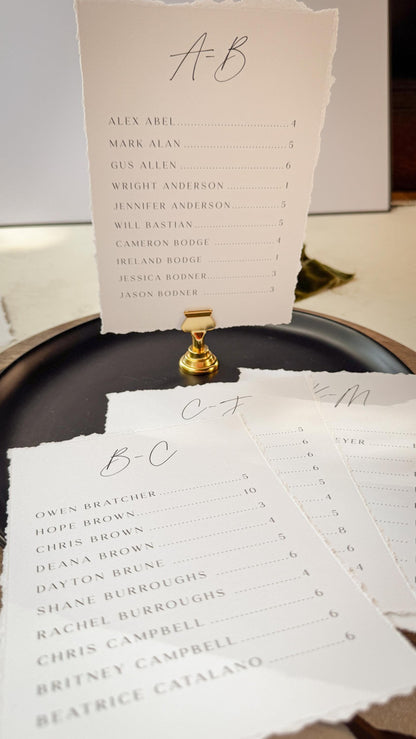 A-B
ALEX ABEL 4
MARK ALAN 5
GUS ALLEN 6
WRIGHT ANDERSON 1
JENNIFER ANDERSON 5
WILL BASTIAN 5
CAMERON BODGE 4
IRELAND BODGE 1
JESSICA BODNER 3
JASON BODNER 3
B-C
OWEN BRATCHER 5
HOPE BROWN 10
CHRIS BROWN 3
DEANA BROWN 4
DAYTON BRUNE 5
SHANE BURROUGHS 6
RACHEL BURROUGHS 4
CHRIS CAMPBELL 6
BRITNEY CAMPBELL 6
BEATRICE CATALANO 6
C-F
5
6
6
6
5
4
5
8
6
4
-M
EYER